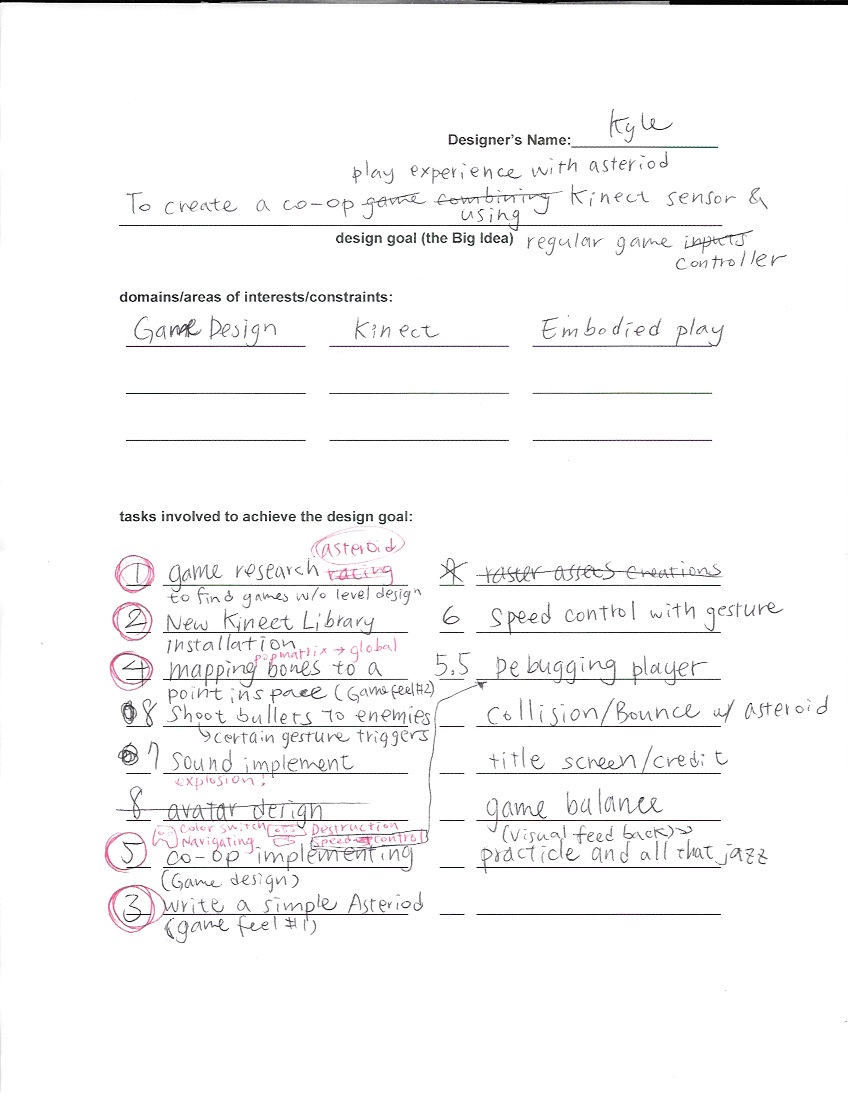 Designer's Name: Kyle
play experience with asteriod
To create a co-op game combining Kinect sensor &
using
design goal (the Big Idea) regular game inputs
controller
domains/areas of interests/constraints:
Game Design Kinect Embodied play
tasks involved to achieve the design goal:
asteroid
1 game research racing
to find games w/o level design
2 New Kinect Library
installation
popmatrix → global
4 mapping bones to a
point in space (Game feel #2)
8 Shoot bullets to enemies
↳ certain gesture triggers
7 Sound implement
explosion!
8 avatar design
Color switch Destruction
Navigating Speed control
5 co-op implementing
(Game design)
3 write a simple Asteriod
(game feel #1)
raster assets creations
6 Speed control with gesture
5.5 Debugging player
Collision/Bounce w/ asteroid
title screen/credit
game balance
(visual feed back)
practicle and all that jazz